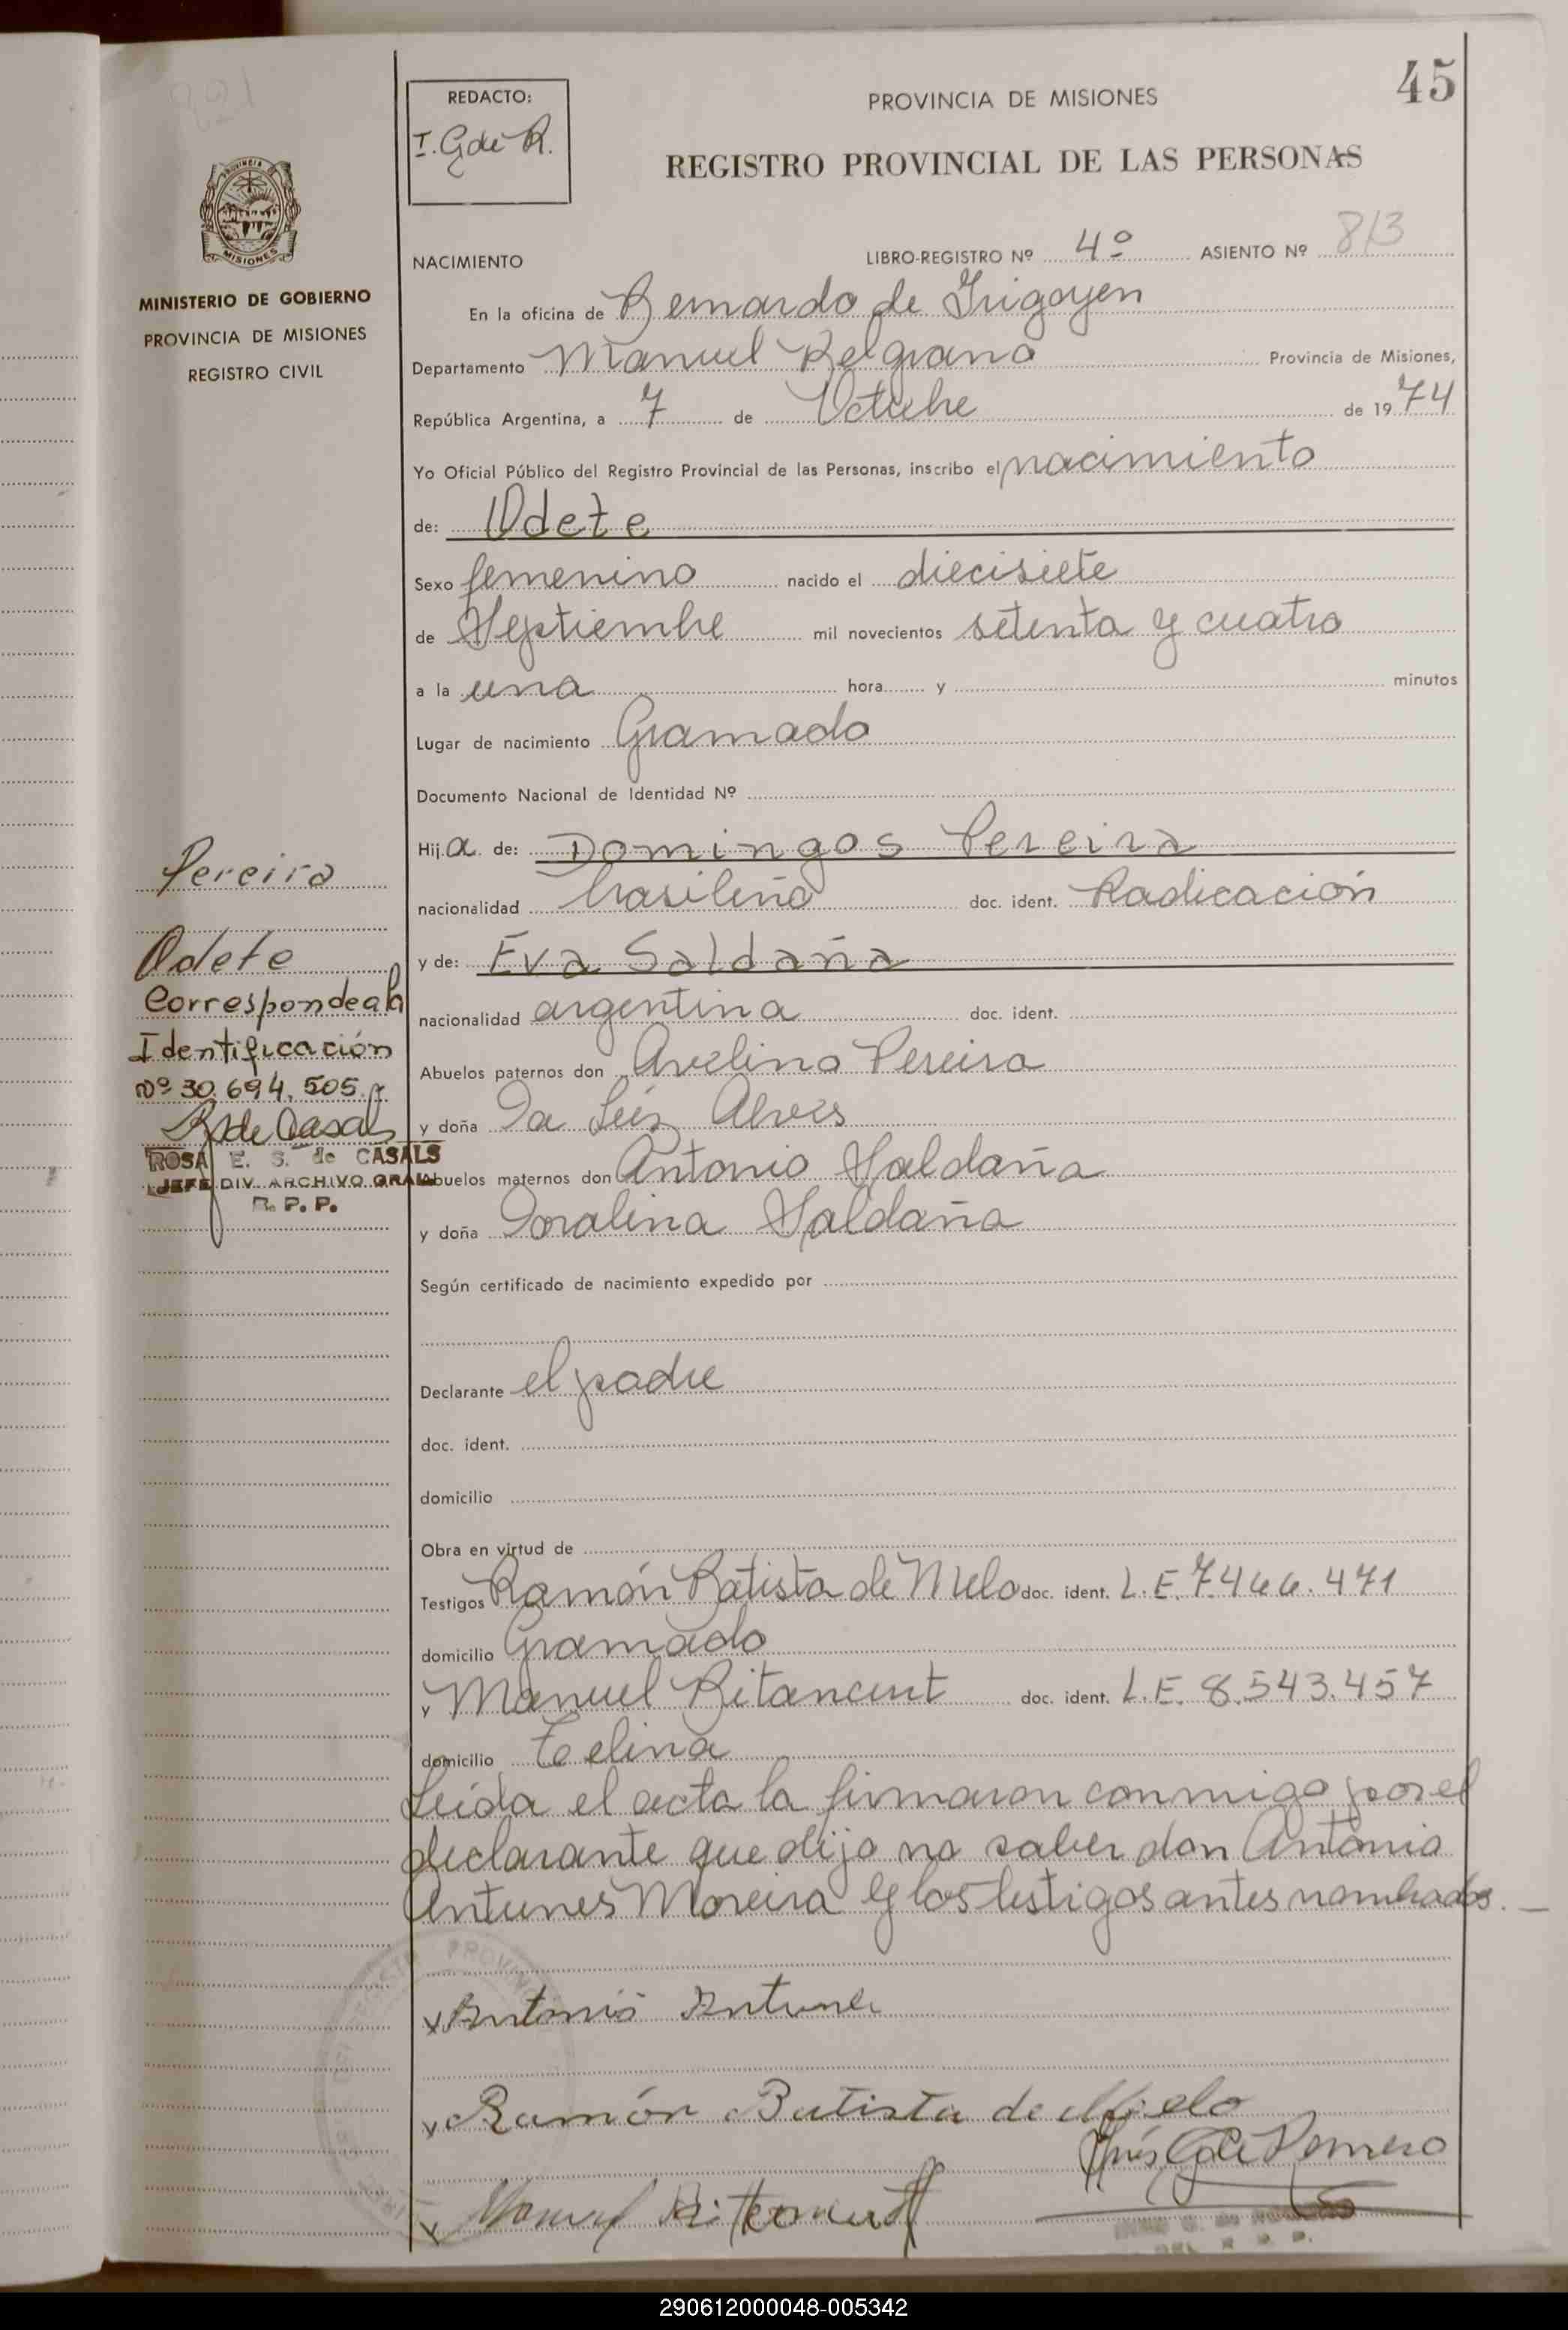 45
REDACTO:
I. G de R.
PROVINCIA DE MISIONES
REGISTRO PROVINCIAL DE LAS PERSONAS
NACIMIENTO
LIBRO-REGISTRO Nº 4º ASIENTO Nº 813
En la oficina de Bernardo de Irigoyen
Departamento Manuel Belgrano Provincia de Misiones,
República Argentina, a 7 de Octubre de 1974
Yo Oficial Público del Registro Provincial de las Personas, inscribo el nacimiento
de: Odete
Sexo femenino nacido el diecisiete
de Septiembre mil novecientos setenta y cuatro
a la una hora y minutos
Lugar de nacimiento Gramado
Documento Nacional de Identidad Nº
Hija de: Domingos Pereira
nacionalidad brasileño doc. ident. Radicación
y de: Eva Saldaña
nacionalidad argentina doc. ident.
Abuelos paternos don Avelino Pereira
y doña Alves
Abuelos maternos don Antonio Saldaña
y doña Doralina Saldaña
Según certificado de nacimiento expedido por
Declarante el padre
doc. ident.
domicilio
Obra en virtud de
Testigos Ramón Batista de Melo doc. ident. L.E. 7.466.471
domicilio Gramado
y Manuel Bitancurt doc. ident. L.E. 8.543.457
domicilio
Leída el acta la firmaron conmigo por el
declarante que dijo no saber don Antonio
Antunes Moreira y los testigos antes nombrados. —
x Antonio Antunes
x Ramón Batista de Melo
Inés G de Romero
x Manuel Bitancurt
PROVINCIA DE MISIONES
MINISTERIO DE GOBIERNO
PROVINCIA DE MISIONES
REGISTRO CIVIL
Pereira
Odete
Corresponde a la
Identificación
Nº 30.694.505
R de Casals
ROSA E. S. de CASALS
JEFE DIV. ARCHIVO GRAL
R. P. P.
290612000048-005342